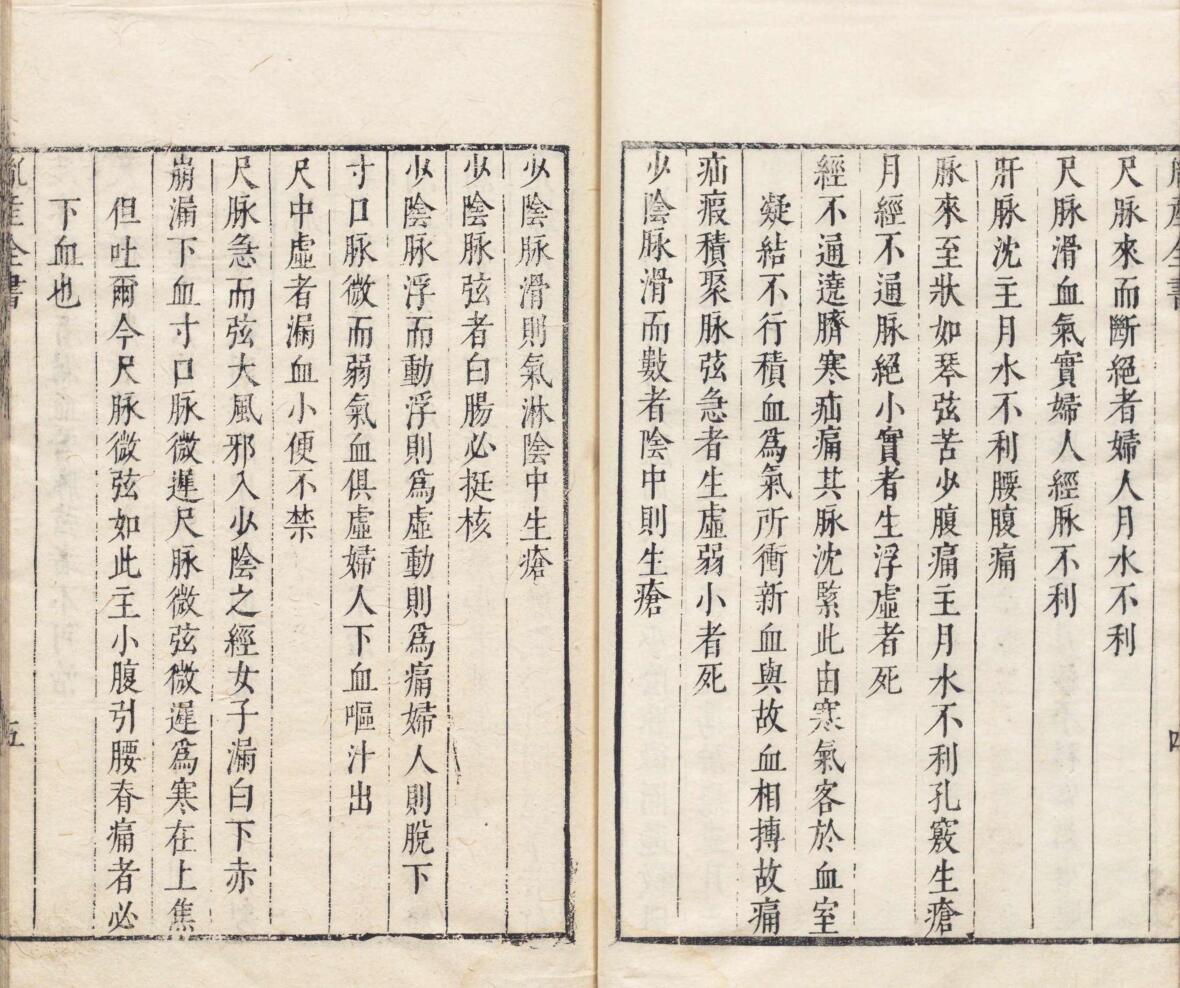 胤產全書
四
尺脉來而斷絕者婦人月水不利
尺脉滑血氣實婦人經脉不利
肝脉沈主月水不利腰腹痛
脉來至狀如琴弦苦少腹痛主月水不利孔竅生瘡
月經不通脉絕小實者生浮虛者死
經不通遶臍寒疝痛其脉沈緊此由寒氣客於血室
凝結不行積血爲氣所衝新血與故血相摶故痛
疝瘕積聚脉弦急者生虛弱小者死
少陰脉滑而數者陰中則生瘡
少陰脉滑則氣淋陰中生瘡
少陰脉弦者白腸必挺核
少陰脉浮而動浮則爲虛動則爲痛婦人則脫下
寸口脉微而弱氣血俱虛婦人下血嘔汁出
尺中虛者漏血小便不禁
尺脉急而弦大風邪入少陰之經女子漏白下赤
崩漏下血寸口脉微遲尺脉微弦微遲爲寒在上焦
但吐爾今尺脉微弦如此主小腹引腰脊痛者必
下血也
胤產全書
五